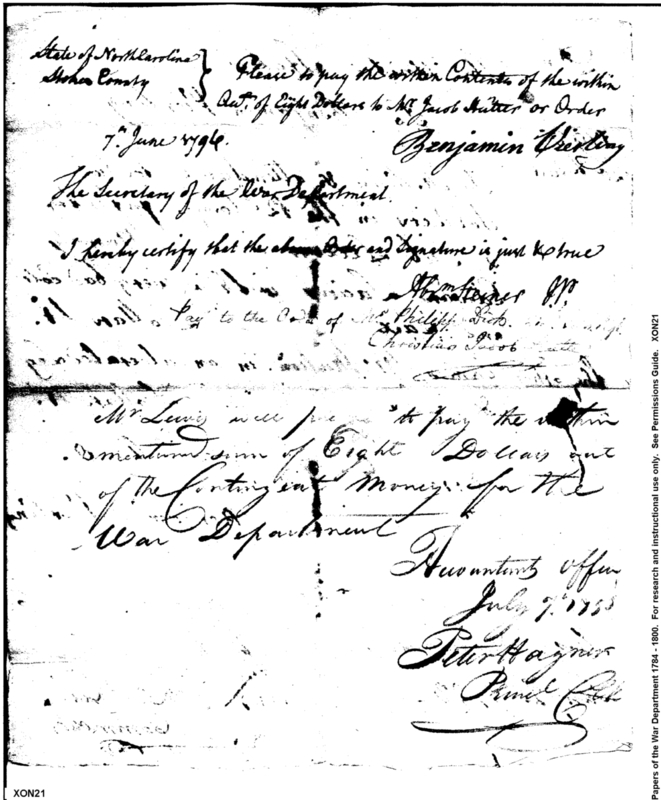 State of North Carolina
Stokes County
Please to pay the within Contents of the within
Act. of Eight Dollars to Mr. Jacob Hutter or Order
7th June 1796.
Benjamin
The Secretary of the War Department.
I hereby certify that the above Order and Signature is just & true
Abm Steiner JP.
Pay to the Order of Mr. Philipp Dick
Christian Jacob
Mr Lewis will please to pay the within
mentioned sum of Eight Dollars out
of the Contingent Money for the
War Department
Accountants office
July 7th 1798
Peter Hagner
Prinl Clk
XON21
Papers of the War Department 1784 - 1800. For research and instructional use only. See Permissions Guide. XON21